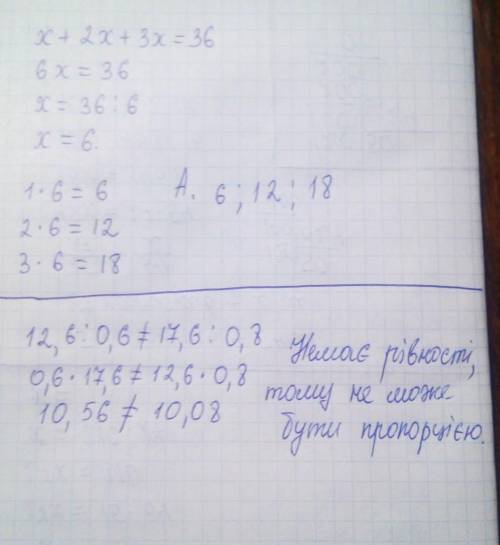 x + 2x + 3x = 36
6x = 36
x = 36 : 6
x = 6.
1 · 6 = 6
2 · 6 = 12
3 · 6 = 18
А. 6 ; 12 ; 18
12,6 : 0,6 ≠ 17,6 : 0,8
0,6 · 17,6 ≠ 12,6 · 0,8
10,56 ≠ 10,08
Немає рівності,
тому не може
бути пропорцією.